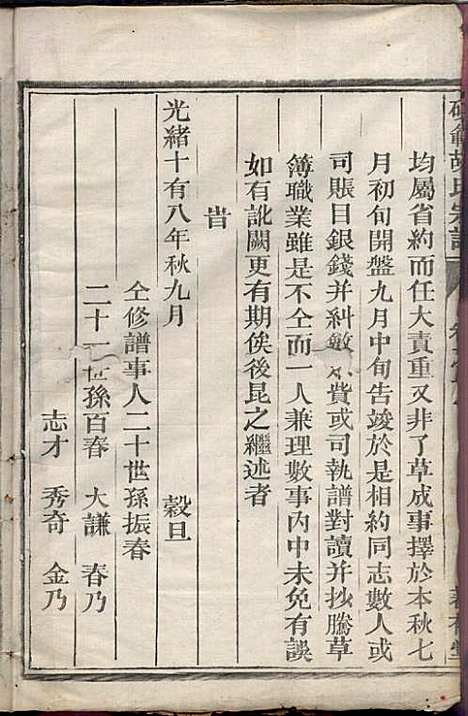 胡氏宗譜
均屬省約而任大責重又非了草成事擇於本秋七
月初旬開盤九月中旬告竣於是相約同志數人或
司賬目銀錢并糾費或司執譜對讀并抄騰草
簿職業雖是不仝而一人兼理數事内中未免有誤
如有訛闕更有期俟後昆之繼述者
旹
光緒十有八年秋九月 穀旦
仝修譜事人二十世孫振春
二十一世孫百春 大謙 春乃
志才 秀奇 金乃